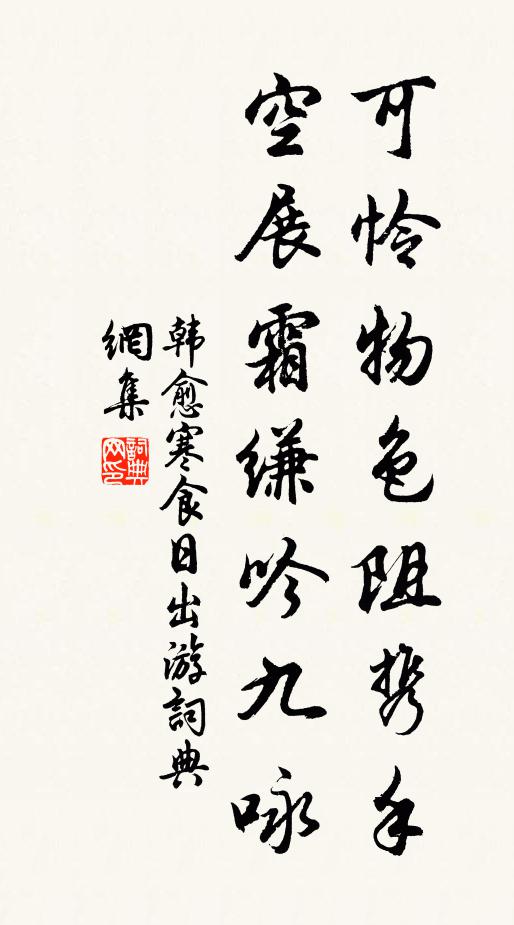 可怜物色阻携手
空展霜缣吟九咏
韩愈寒食日出游詞典
網集
詞典网印